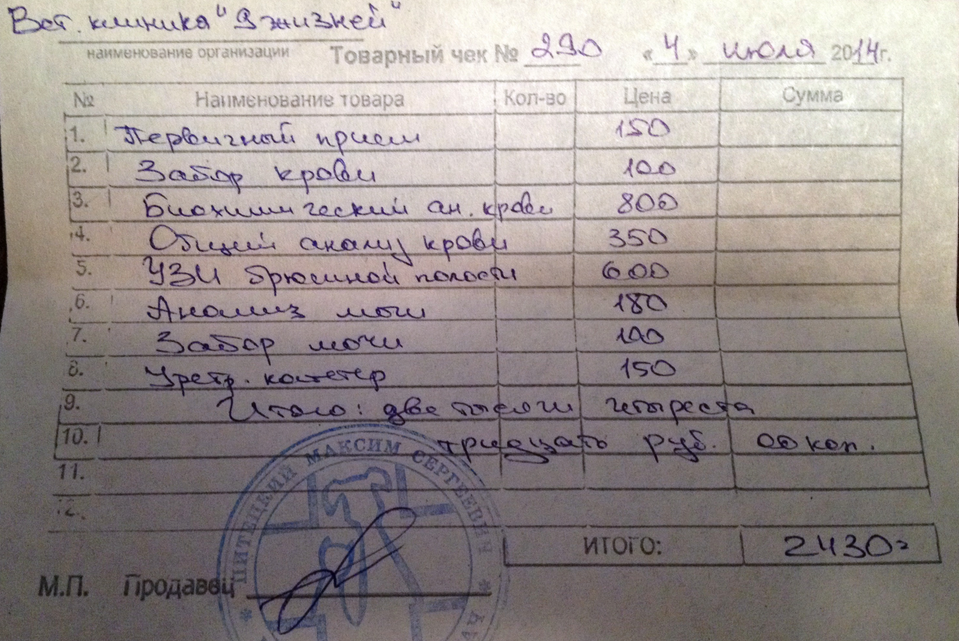 Вет. клиника "9 жизней"
наименование организации Товарный чек № 290 «4» июля 2014г.
№ Наименование товара Кол-во Цена Сумма
1. Первичный прием 150
2. Забор крови 100
3. Биохимический ан. крови 800
4. Общий анализ крови 350
5. УЗИ брюшной полости 600
6. Анализ мочи 180
7. Забор мочи 100
8. Уретр. катетер 150
9. Итого: две тысячи четыреста
10. тридцать руб. 00 коп.
11.
12.
ИТОГО: 2430=
М.П. Продавец
ПИТЕЦКИЙ МАКСИМ СЕРГЕЕВИЧ